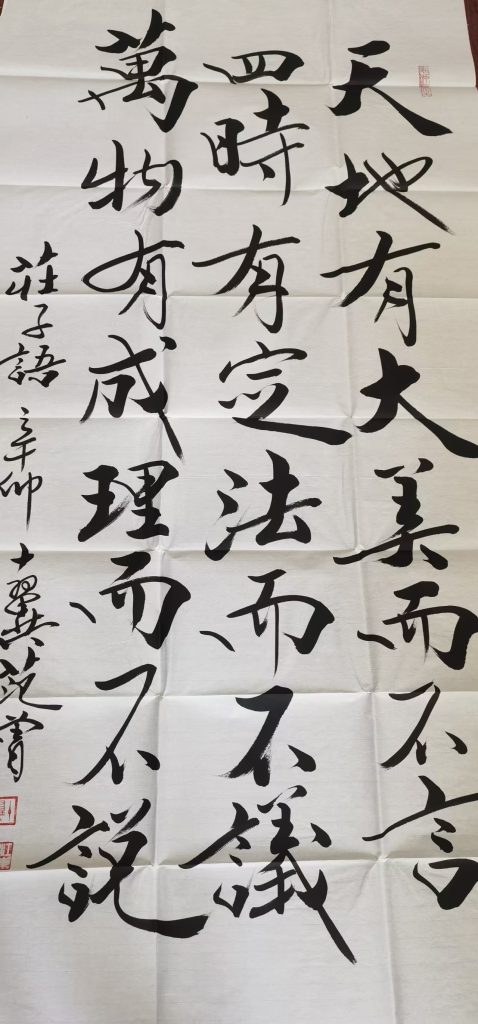 天地有大美而不言
四時有定法而不議
萬物有成理而不說
莊子語 辛卯 十翼范曾